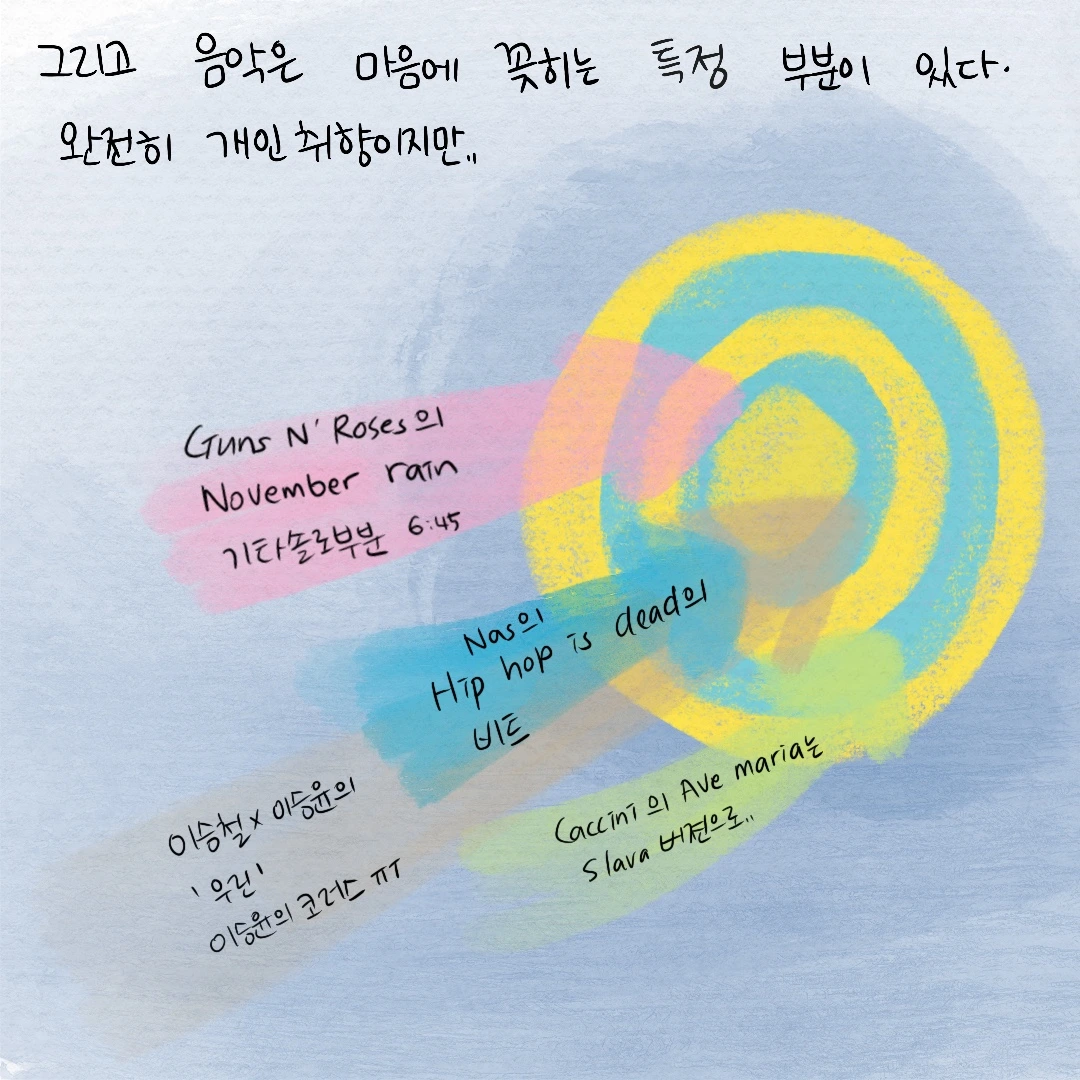 그리고 음악은 마음에 꽂히는 특정 부분이 있다.
완전히 개인취향이지만,,
Guns N' Roses의
November rain
기타솔로부분 6:45
Nas의
Hip hop is dead의
비트
이승철 x 이승윤의
'우린'
이승윤의 코러스 ㅠㅜ
Caccini의 Ave maria는
Slava 버젼으로..